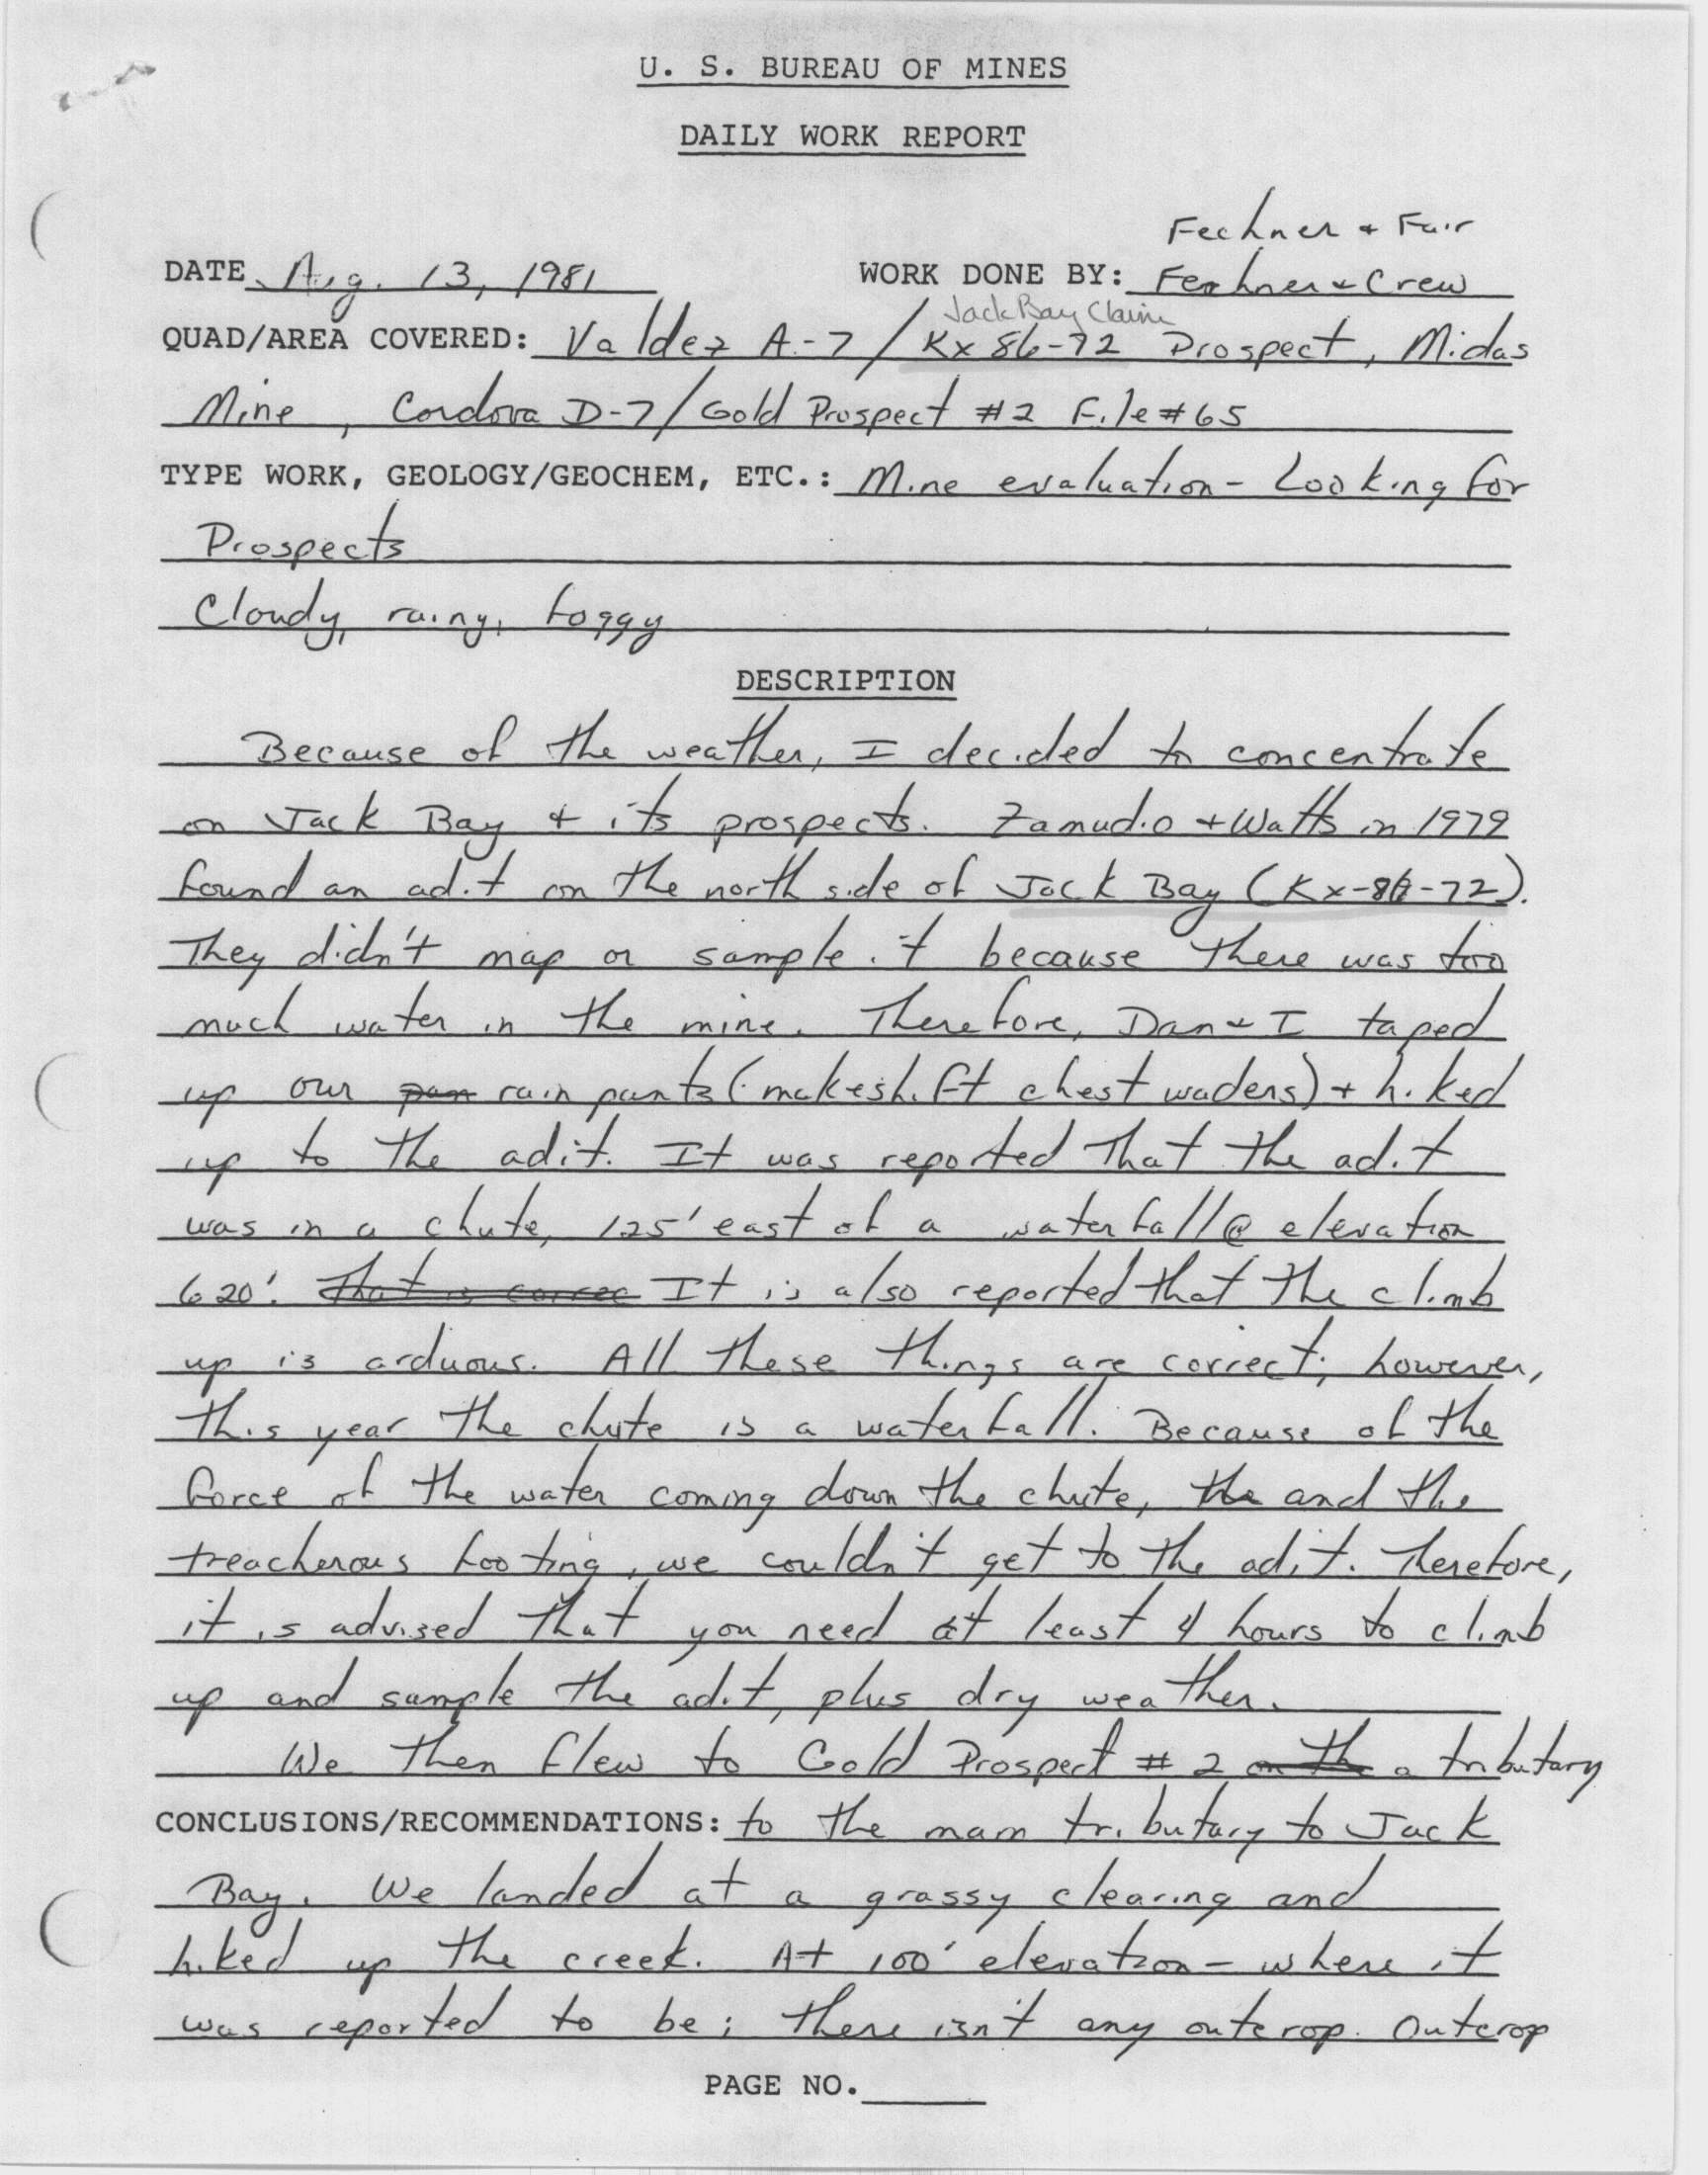 U. S. BUREAU OF MINES
DAILY WORK REPORT
Fechner + Fair
DATE Aug. 13, 1981 WORK DONE BY: Fechner + Crew
Jack Bay Claim
QUAD/AREA COVERED: Valdez A-7/Kx 86-72 Prospect, Midas
Mine, Cordova D-7/Gold Prospect #2 File #65
TYPE WORK, GEOLOGY/GEOCHEM, ETC.: Mine evaluation - Looking for
Prospects
Cloudy, rainy, foggy
DESCRIPTION
Because of the weather, I decided to concentrate
on Jack Bay + its prospects. Zamudio + Watts in 1979
found an adit on the north side of Jack Bay (Kx-86-72).
They didn't map or sample it because there was too
much water in the mine. Therefore, Dan + I taped
up our pan rain pants (makeshift chest waders) + hiked
up to the adit. It was reported that the adit
was in a chute, 125' east of a waterfall @ elevation
620'. That is correc It is also reported that the climb
up is arduous. All these things are correct; however,
this year the chute is a waterfall. Because of the
force of the water coming down the chute, the and the
treacherous footing, we couldn't get to the adit. Therefore,
it is advised that you need at least 4 hours to climb
up and sample the adit, plus dry weather.
We then flew to Gold Prospect #2 on the a tributary
CONCLUSIONS/RECOMMENDATIONS: to the main tributary to Jack
Bay. We landed at a grassy clearing and
hiked up the creek. At 100' elevation - where it
was reported to be; there isn't any outcrop. Outcrop
PAGE NO.